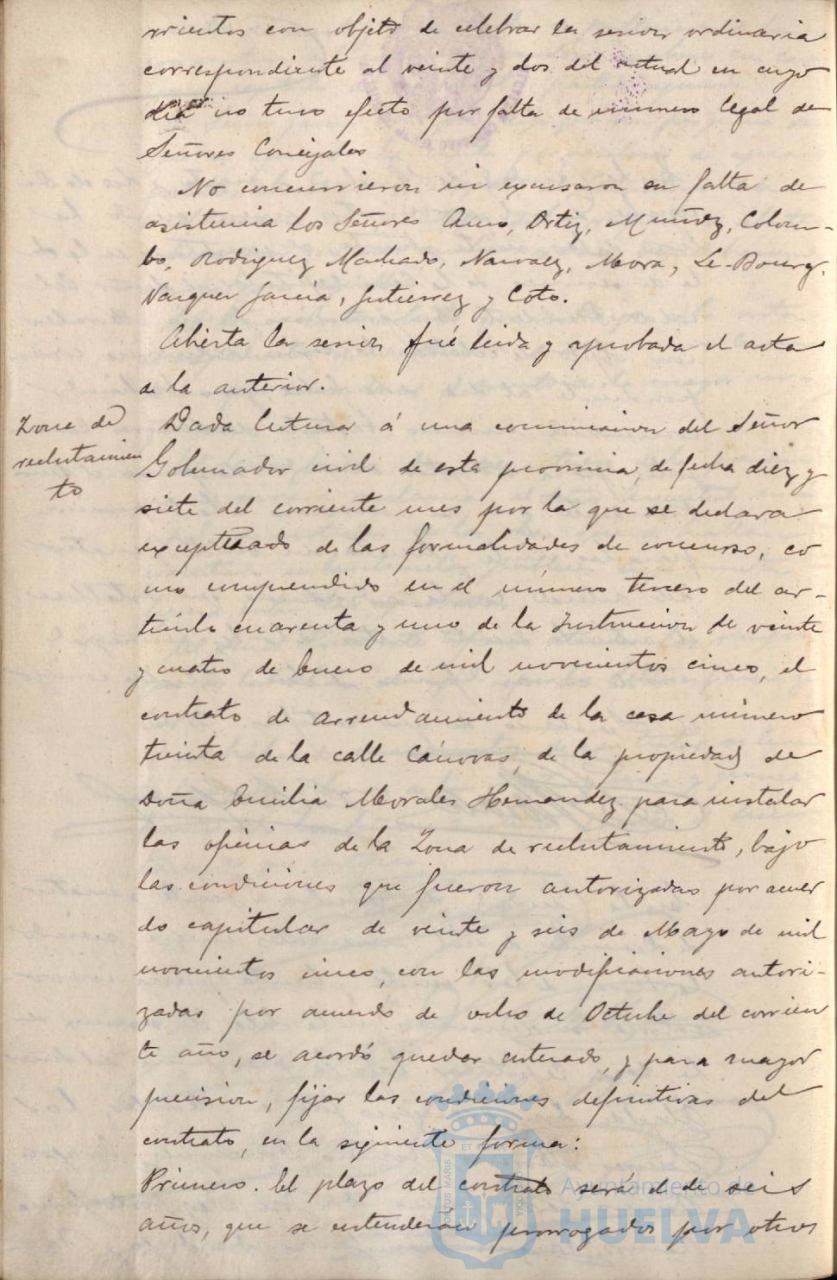 rrientos con objeto de celebrar la sesion ordinaria
correspondiente al veinte y dos del actual en cuyo
dia no tuvo efecto por falta de numero legal de
Señores Concejales
No concurrieron ni excusaron su falta de
asistencia los Señores Ortiz, Muñoz, Colom-
bo, Rodriguez Machado, Narvaez, Mora, Le-Bourg,
Vazquez Garcia, Gutierrez y Coto.
Abierta la sesion fué leida y aprobada el acta
de la anterior.
Zona de
reclutamien
to
Dada lectura á una comunicacion del Señor
Gobernador civil de esta provincia, de fecha diez y
siete del corriente mes por la que se declara
exceptuado de las formalidades de concurso, co
mo comprendido en el número tercero del ar-
ticulo cuarenta y uno de la Instruccion de veinte
y cuatro de Enero de mil novecientos cinco, el
contrato de arrendamiento de la casa número
treinta de la calle Cánovas, de la propiedad de
Doña Emilia Morales Hernandez para instalar
las oficinas de la Zona de reclutamiento, bajo
las condiciones que fueron autorizadas por acuer
do capitular de veinte y seis de Mayo de mil
novecientos cinco, con las modificaciones autori-
zadas por acuerdo de ocho de Octubre del corrien
te año, se acordó quedar enterado, y para mayor
precision, fijar las condiciones definitivas del
contrato, en la siguiente forma:
Primero. El plazo del contrato será el de seis
años, que se entenderán prorrogados por otros
Ayuntamiento de
HUELVA